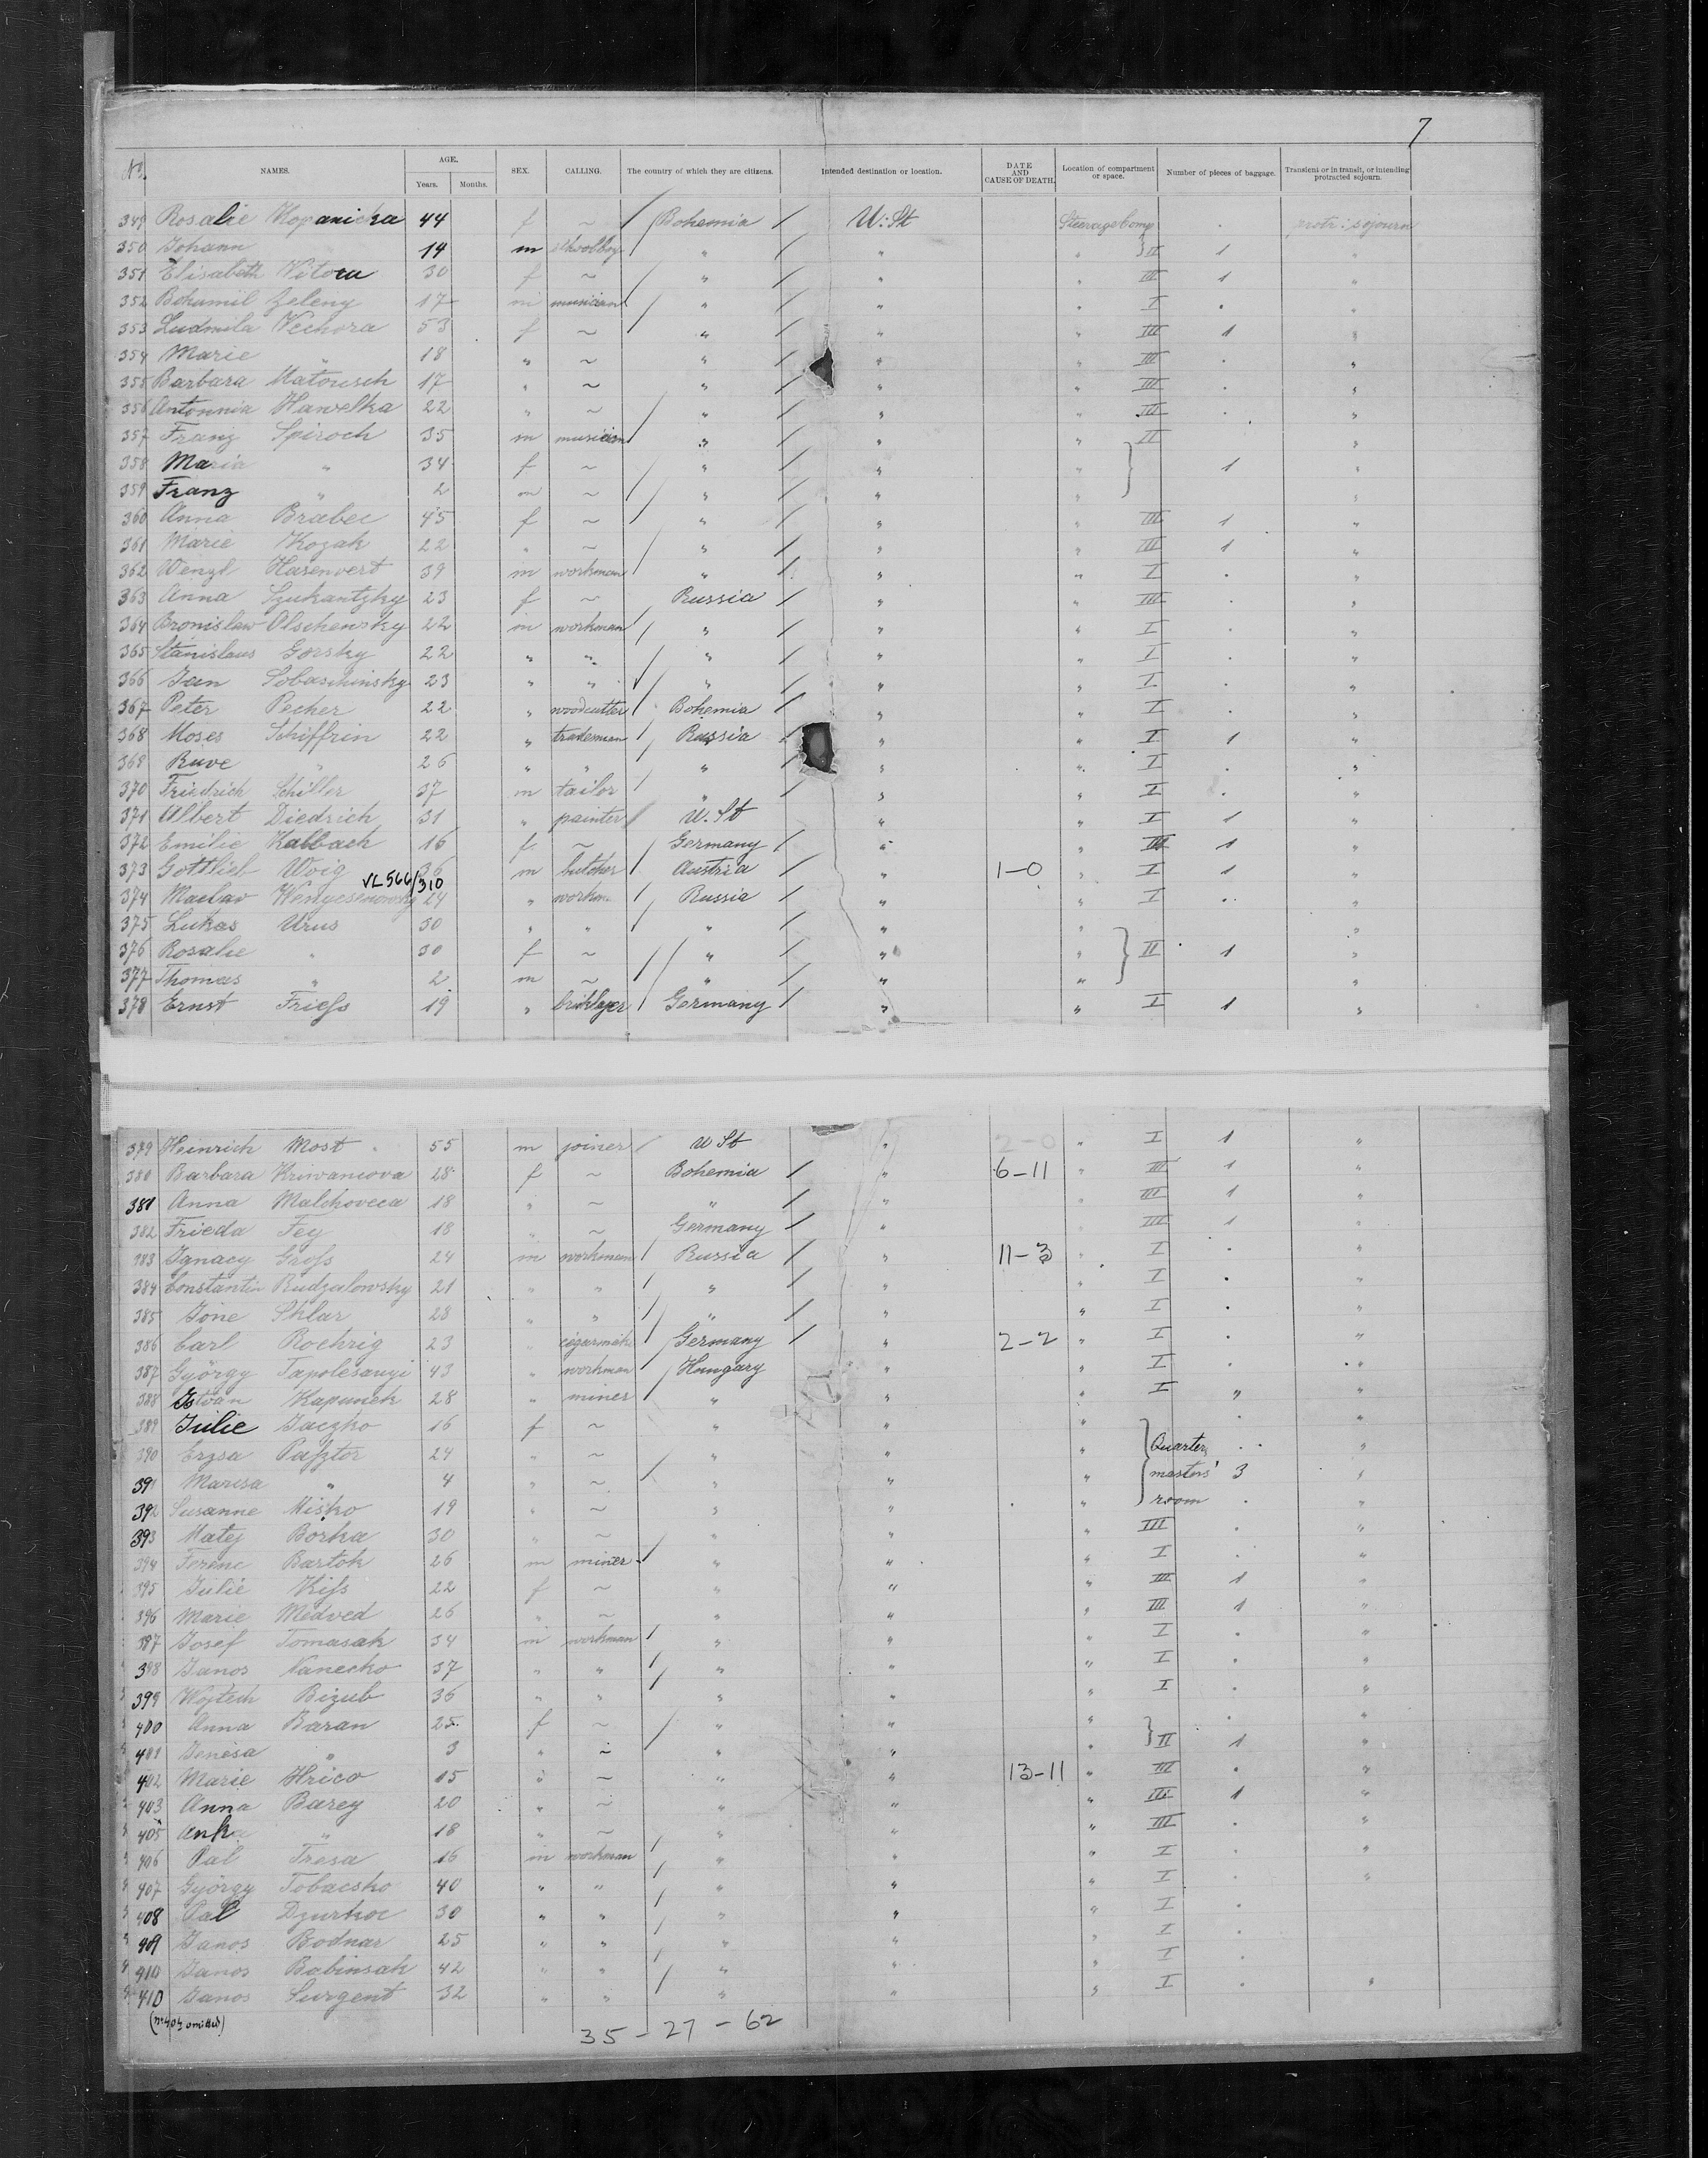 7
No. NAMES. AGE. Years. Months. SEX. CALLING. The country of which they are citizens. Intended destination or location. DATE AND CAUSE OF DEATH. Location of compartment or space. Number of pieces of baggage. Transient or in transit, or intending protracted sojourn.
349 Rosalie Kopanicka 44 f ~ / Bohemia / U: St Steerage comp . protr: sojourn
350 Johann " 14 m schoolboy / " / " " } II 1 "
351 Elisabeth Vitou 30 f ~ / " / " " III 1 "
352 Bohumil Zeleny 17 m musician / " / " " I . "
353 Ludmila Vechora 53 f ~ / " / " " III 1 "
354 Marie " 18 " ~ " / " " III . "
355 Barbara Matousch 17 " ~ " / " " III . "
356 Antonnia Hawelka 22 " ~ / " / " " III . "
357 Franz Spiroch 35 m musician / " / " " II "
358 Maria " 34 f ~ / " / " " } 1 "
359 Franz " 2 m ~ / " / " " "
360 Anna Brabec 45 f ~ / " / " " III 1 "
361 Marie Kozak 22 " ~ / " / " " III 1 "
362 Wenzl Hasenvert 39 m workman / " / " " I . "
363 Anna Szukantzky 23 f ~ Russia / " " III . "
364 Bronislaw Olschewsky 22 m workman / " / " " I . "
365 Stanislaus Gorsky 22 " " / " / " " I . "
366 Jan Sobaschinsky 23 " " / " / " " I . "
367 Peter Pecher 22 " woodcutter / Bohemia / " " I . "
368 Moses Schiffrin 22 " tradesman / Russia / " " I 1 "
369 Ruve " 26 " " / " / " " I . "
370 Friedrich Schiller 37 m tailor / " / " " I . "
371 Albert Diedrich 31 " painter / U. St " " I 1 "
372 Emilie Kalbach 16 f ~ / Germany / " " III 1 "
373 Gottlieb Woig 26 m butcher / Austria / " 1-0 " I 1 "
VL 566/310
374 24 " workm / Russia / " " I . "
375 Lukas Urus 30 " " / " / " " "
376 Rosalie " 30 f ~ / " / " " } II 1 "
377 Thomas " 2 m ~ / " / " " "
378 Ernst Friess 19 " bricklayer / Germany / " " I 1 "
379 Heinrich Most 55 m joiner / U St " 2-0 " I 1 "
380 Barbara Kriwancova 28 f ~ Bohemia / " 6-11 " III 1 "
381 Anna Malchoveca 18 " ~ " / " " III 1 "
382 Frieda Fey 18 " ~ Germany / " " III 1 "
383 Ignacy Gross 24 m workman / Russia / " 11-3 " I . "
384 Constantin Rudzalowsky 21 " " / " / " " I . "
385 Jone Sklar 28 " " / " / " " I . "
386 Carl Roehrig 23 " cigarmak / Germany / " 2-2 " I . "
387 György Tapolesanyi 43 " workman / Hungary " " I . "
388 Istvan Kapunek 28 " miner / " " " I " "
389 Julie Jaczko 16 f ~ " " " . "
390 Erzsa Pasztor 24 " ~ " " " } Quarter . . "
391 Marisa " 4 " ~ / " " " masters' 3 "
392 Susanne Misko 19 " ~ " " " room . "
393 Matej Borka 30 " ~ / " " " III . "
394 Ferenc Bartok 26 m miner / " " " I . "
395 Julie Kiss 22 f ~ " " " III 1 "
396 Marie Medved 26 " ~ " " " III 1 "
397 Josef Tomasak 34 m workman / " " " I . "
398 Janos Vanecko 37 " " / " " " I . "
399 Wojtech Bizub 36 " " / " " " I . "
400 Anna Baran 25 f ~ / " " " . "
401 Jenesa " 3 " ~ / " " " } II 1 "
402 Marie Hrico 15 " ~ " " 13-11 " III . "
403 Anna Barey 20 " ~ " " " III 1 "
405 Anka " 18 " ~ " " " III . "
406 Pal Tresa 16 m workman / " " " I . "
407 György Tobacsko 40 " " / " " " I . "
408 Pal Dzurkoc 30 " " / " " " I .
409 Janos Bodnar 25 " " / " " " I .
410 Janos Babinsak 42 " " / " " " I .
410 Janos Surgent 32 " " / " " " I . "
(No 404 omitted)
35 - 27 - 62